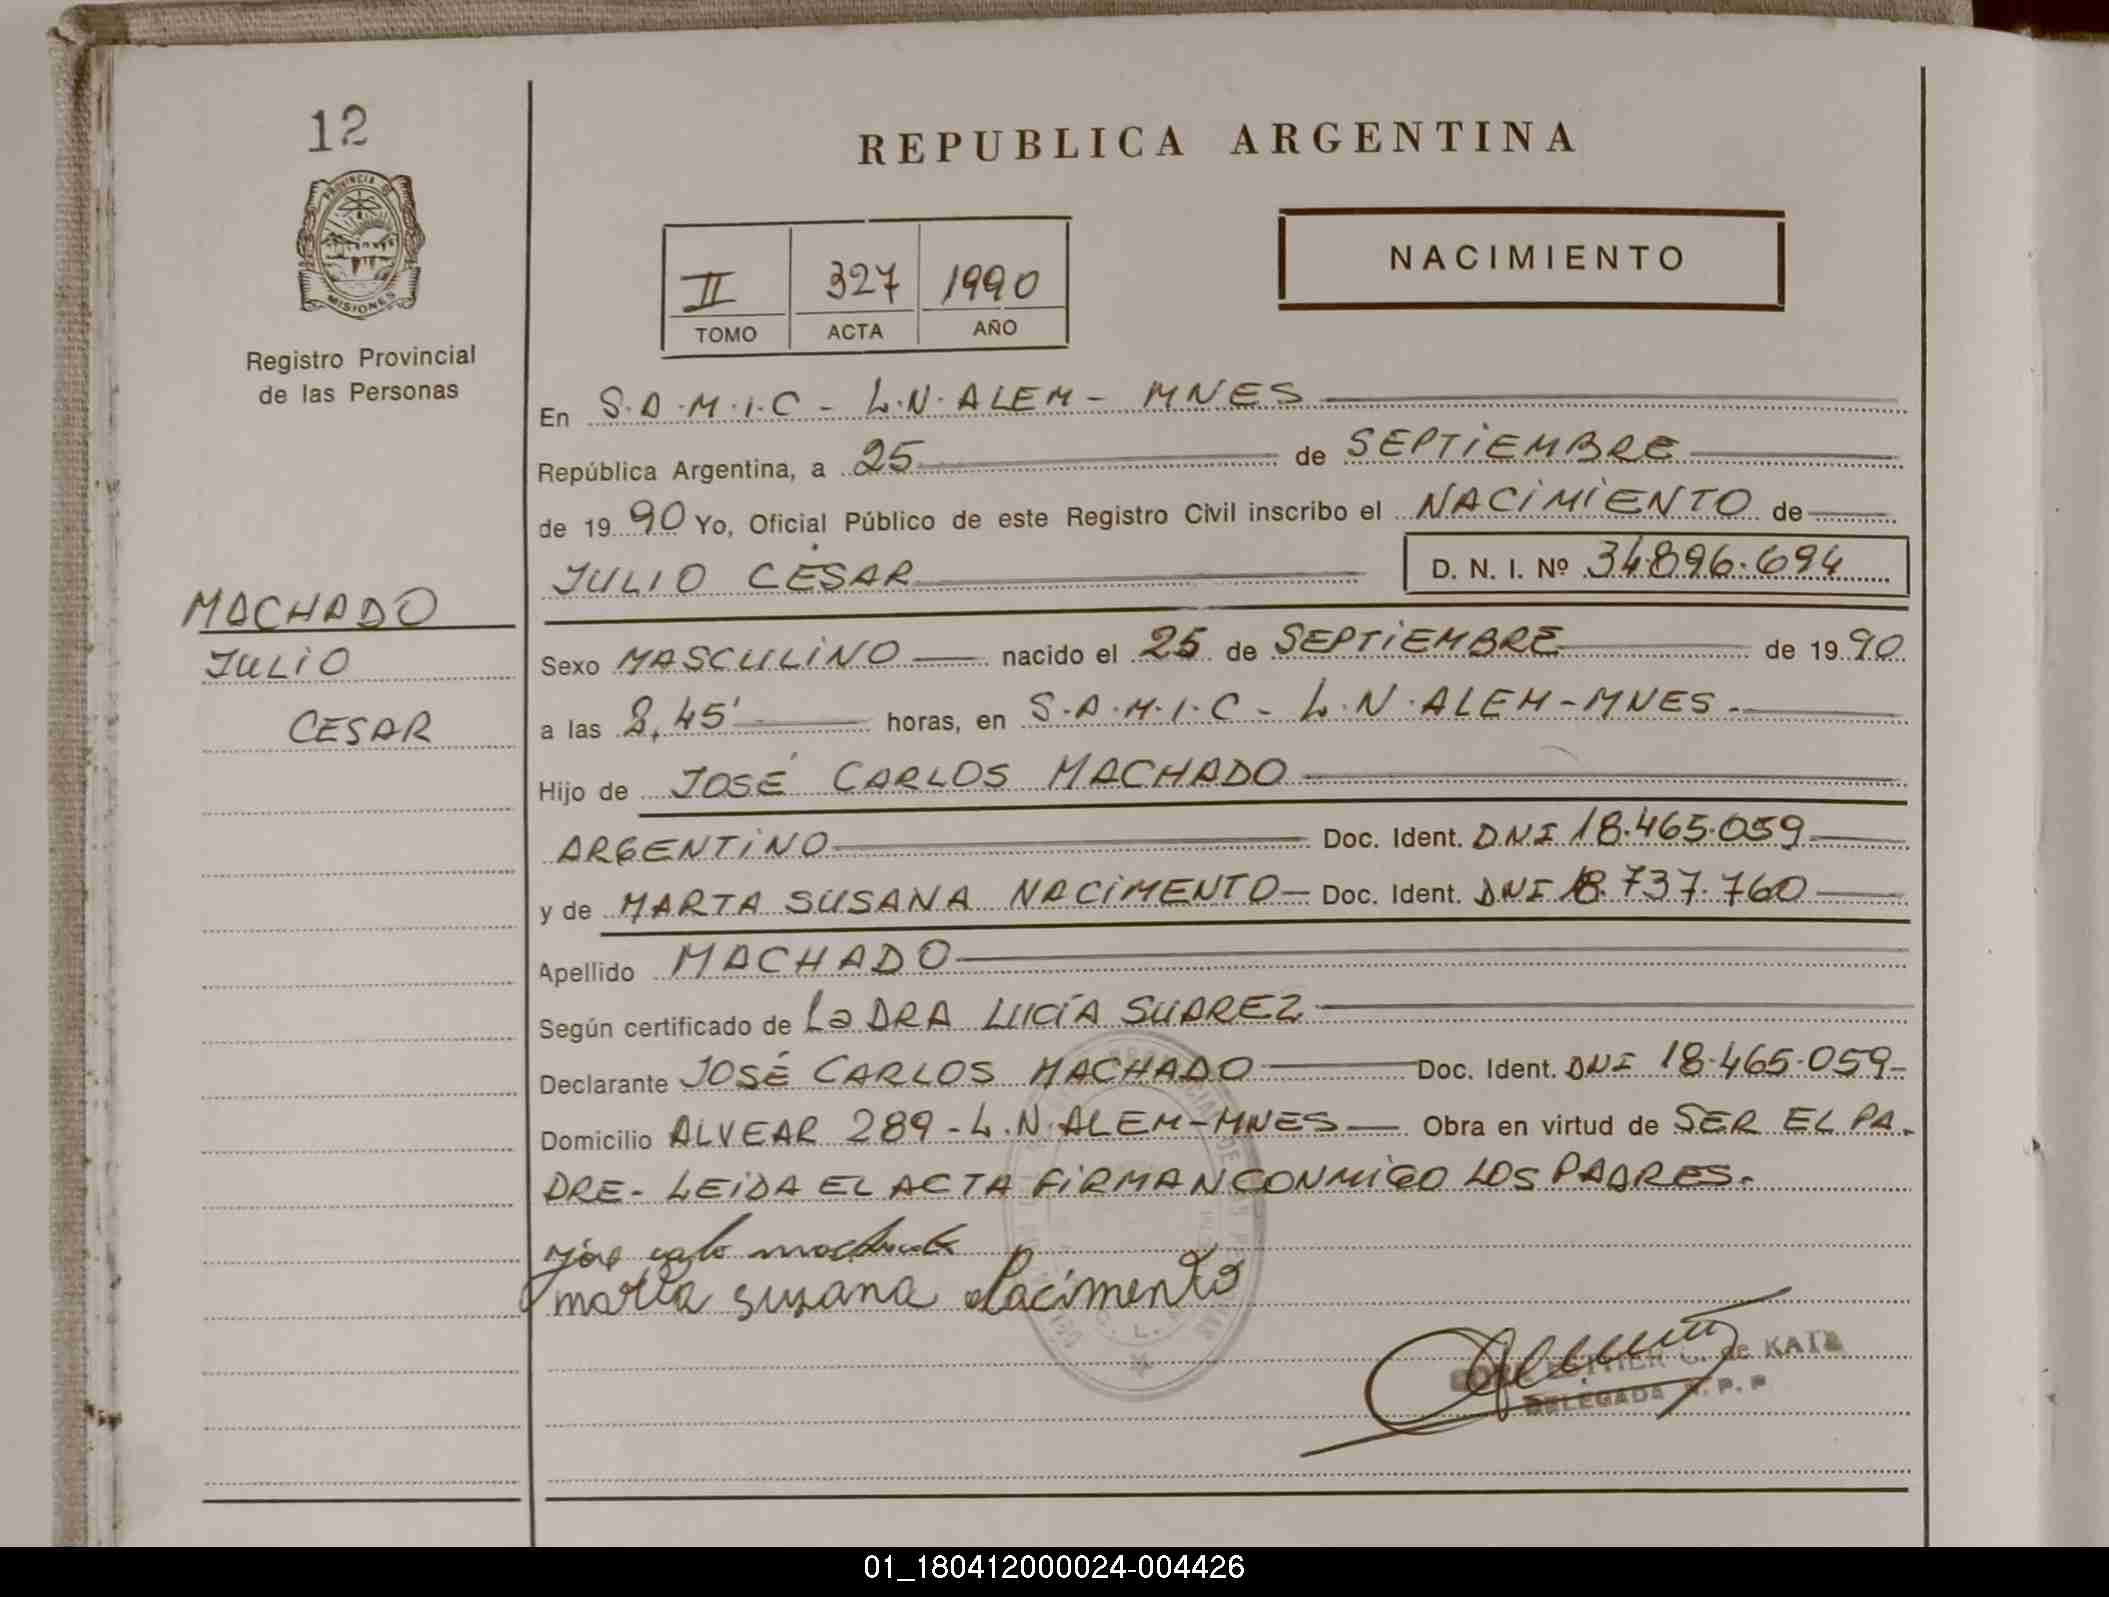 12
PROVINCIA DE
MISIONES
Registro Provincial
de las Personas
MACHADO
JULIO
CESAR
REPUBLICA ARGENTINA
II 327 1990
TOMO ACTA AÑO
NACIMIENTO
En S.A.M.I.C - L.N. ALEM - MNES
República Argentina, a 25 de SEPTIEMBRE
de 1990 Yo, Oficial Público de este Registro Civil inscribo el NACIMIENTO de
JULIO CESAR D. N. I. Nº 34.896.694
Sexo MASCULINO nacido el 25 de SEPTIEMBRE de 1990
a las 8,45' horas, en S.A.M.I.C - L.N. ALEM - MNES.
Hijo de JOSÉ CARLOS MACHADO
ARGENTINO Doc. Ident. DNI 18.465.059
y de MARTA SUSANA NACIMENTO Doc. Ident. DNI 18.737.760
Apellido MACHADO
Según certificado de La DRA LUCÍA SUAREZ
Declarante JOSÉ CARLOS MACHADO Doc. Ident. DNI 18.465.059
Domicilio ALVEAR 289 - L.N. ALEM - MNES Obra en virtud de SER EL PA-
DRE - LEIDA EL ACTA FIRMAN CONMIGO LOS PADRES.
marta susana Nacimento
de KATZ
DELEGADA R. P. P
01_180412000024-004426